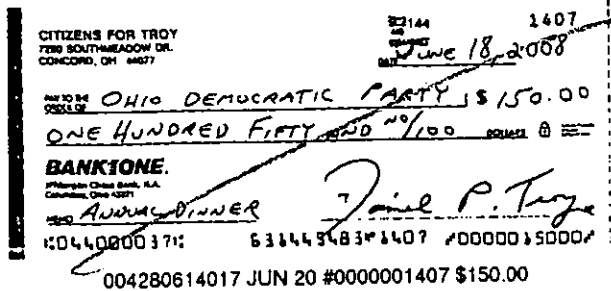 1407
CITIZENS FOR TROY
7290 SOUTHMEADOW DR.
CONCORD, OH 44077
DATE JUNE 18, 2008
PAY TO THE ORDER OF OHIO DEMOCRATIC PARTY $ 150.00
ONE HUNDRED FIFTY AND NO/100 DOLLARS
BANK ONE.
JPMorgan Chase Bank, N.A.
Columbus, Ohio 43271
MEMO ANNUAL DINNER Daniel P. Troy
044000037 631449483 1407 0000015000
004280614017 JUN 20 #0000001407 $150.00